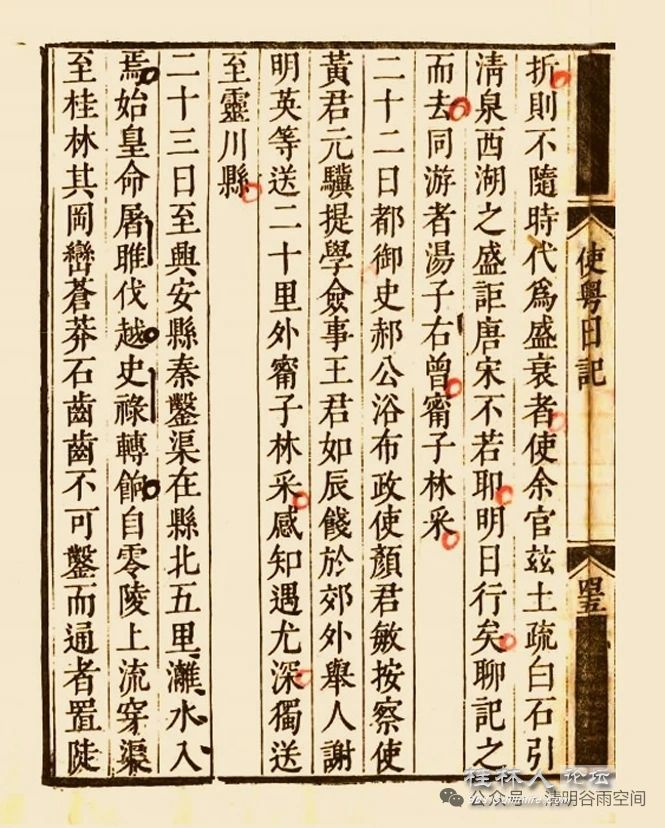 使粵日記
折則不隨時代爲盛衰者使余官茲土疏白石引
淸泉西湖之盛詎唐宋不若耶明日行矣聊記之
而去同游者湯子右曾甯子林釆
二十二日都御史郝公浴布政使顏君敏按察使
黃君元驥提學僉事王君如辰餞於郊外舉人謝
明英等送二十里外甯子林釆感知遇尤深獨送
至靈川縣
二十三日至興安縣秦鑿渠在縣北五里灕水入
焉始皇命屠睢伐越史祿轉餉自零陵上流穿渠
至桂林其岡巒蒼莽石齒齒不可鑿而通者置陡
桂林人论坛
公众号 · 清明谷雨空间